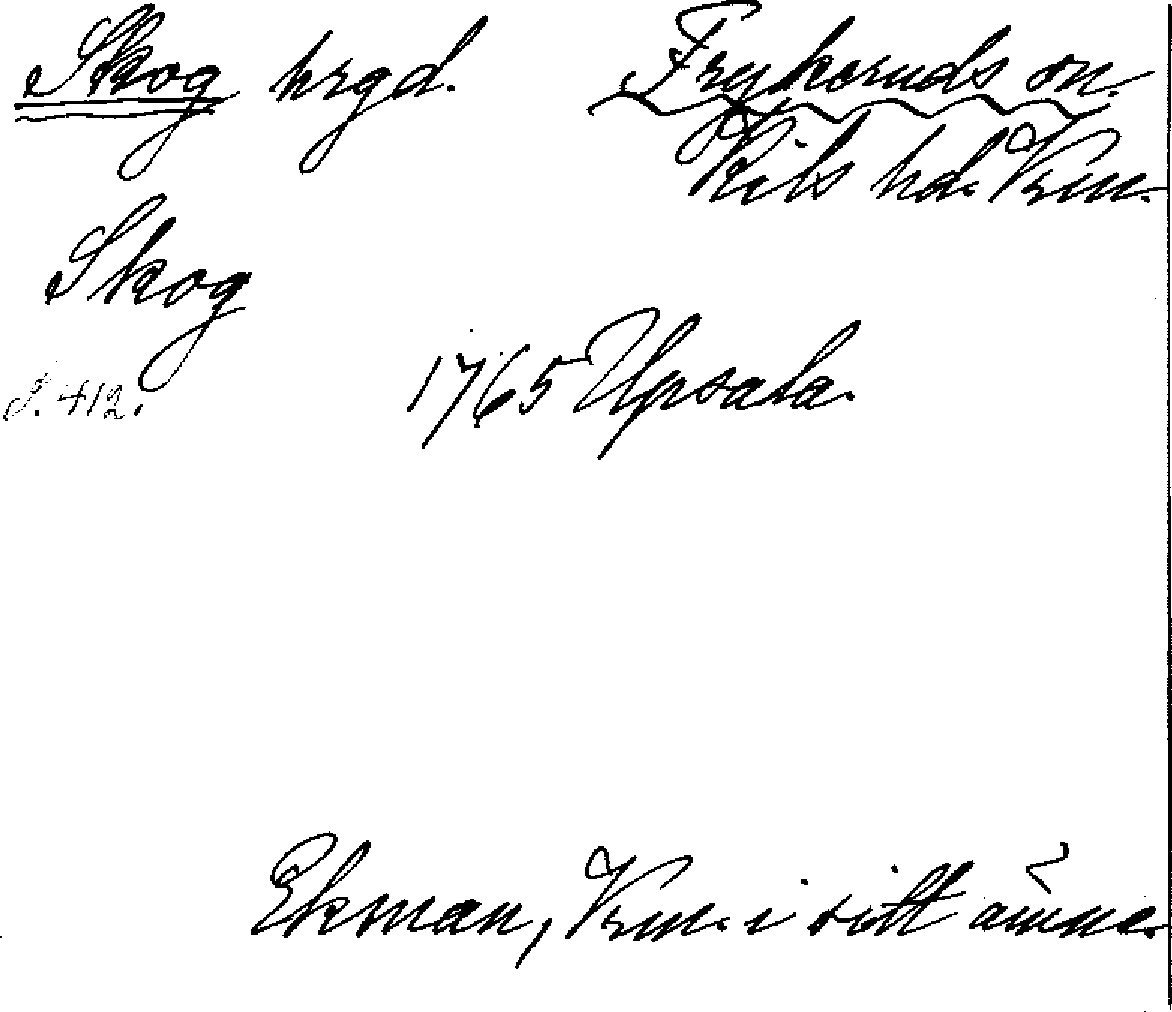 Skog hrgd. Frykeruds sn.
Kils hd. Vrm.
Skog
S. 412. 1765 Upsala.
Ekman, Vrm. i sitt ämne.